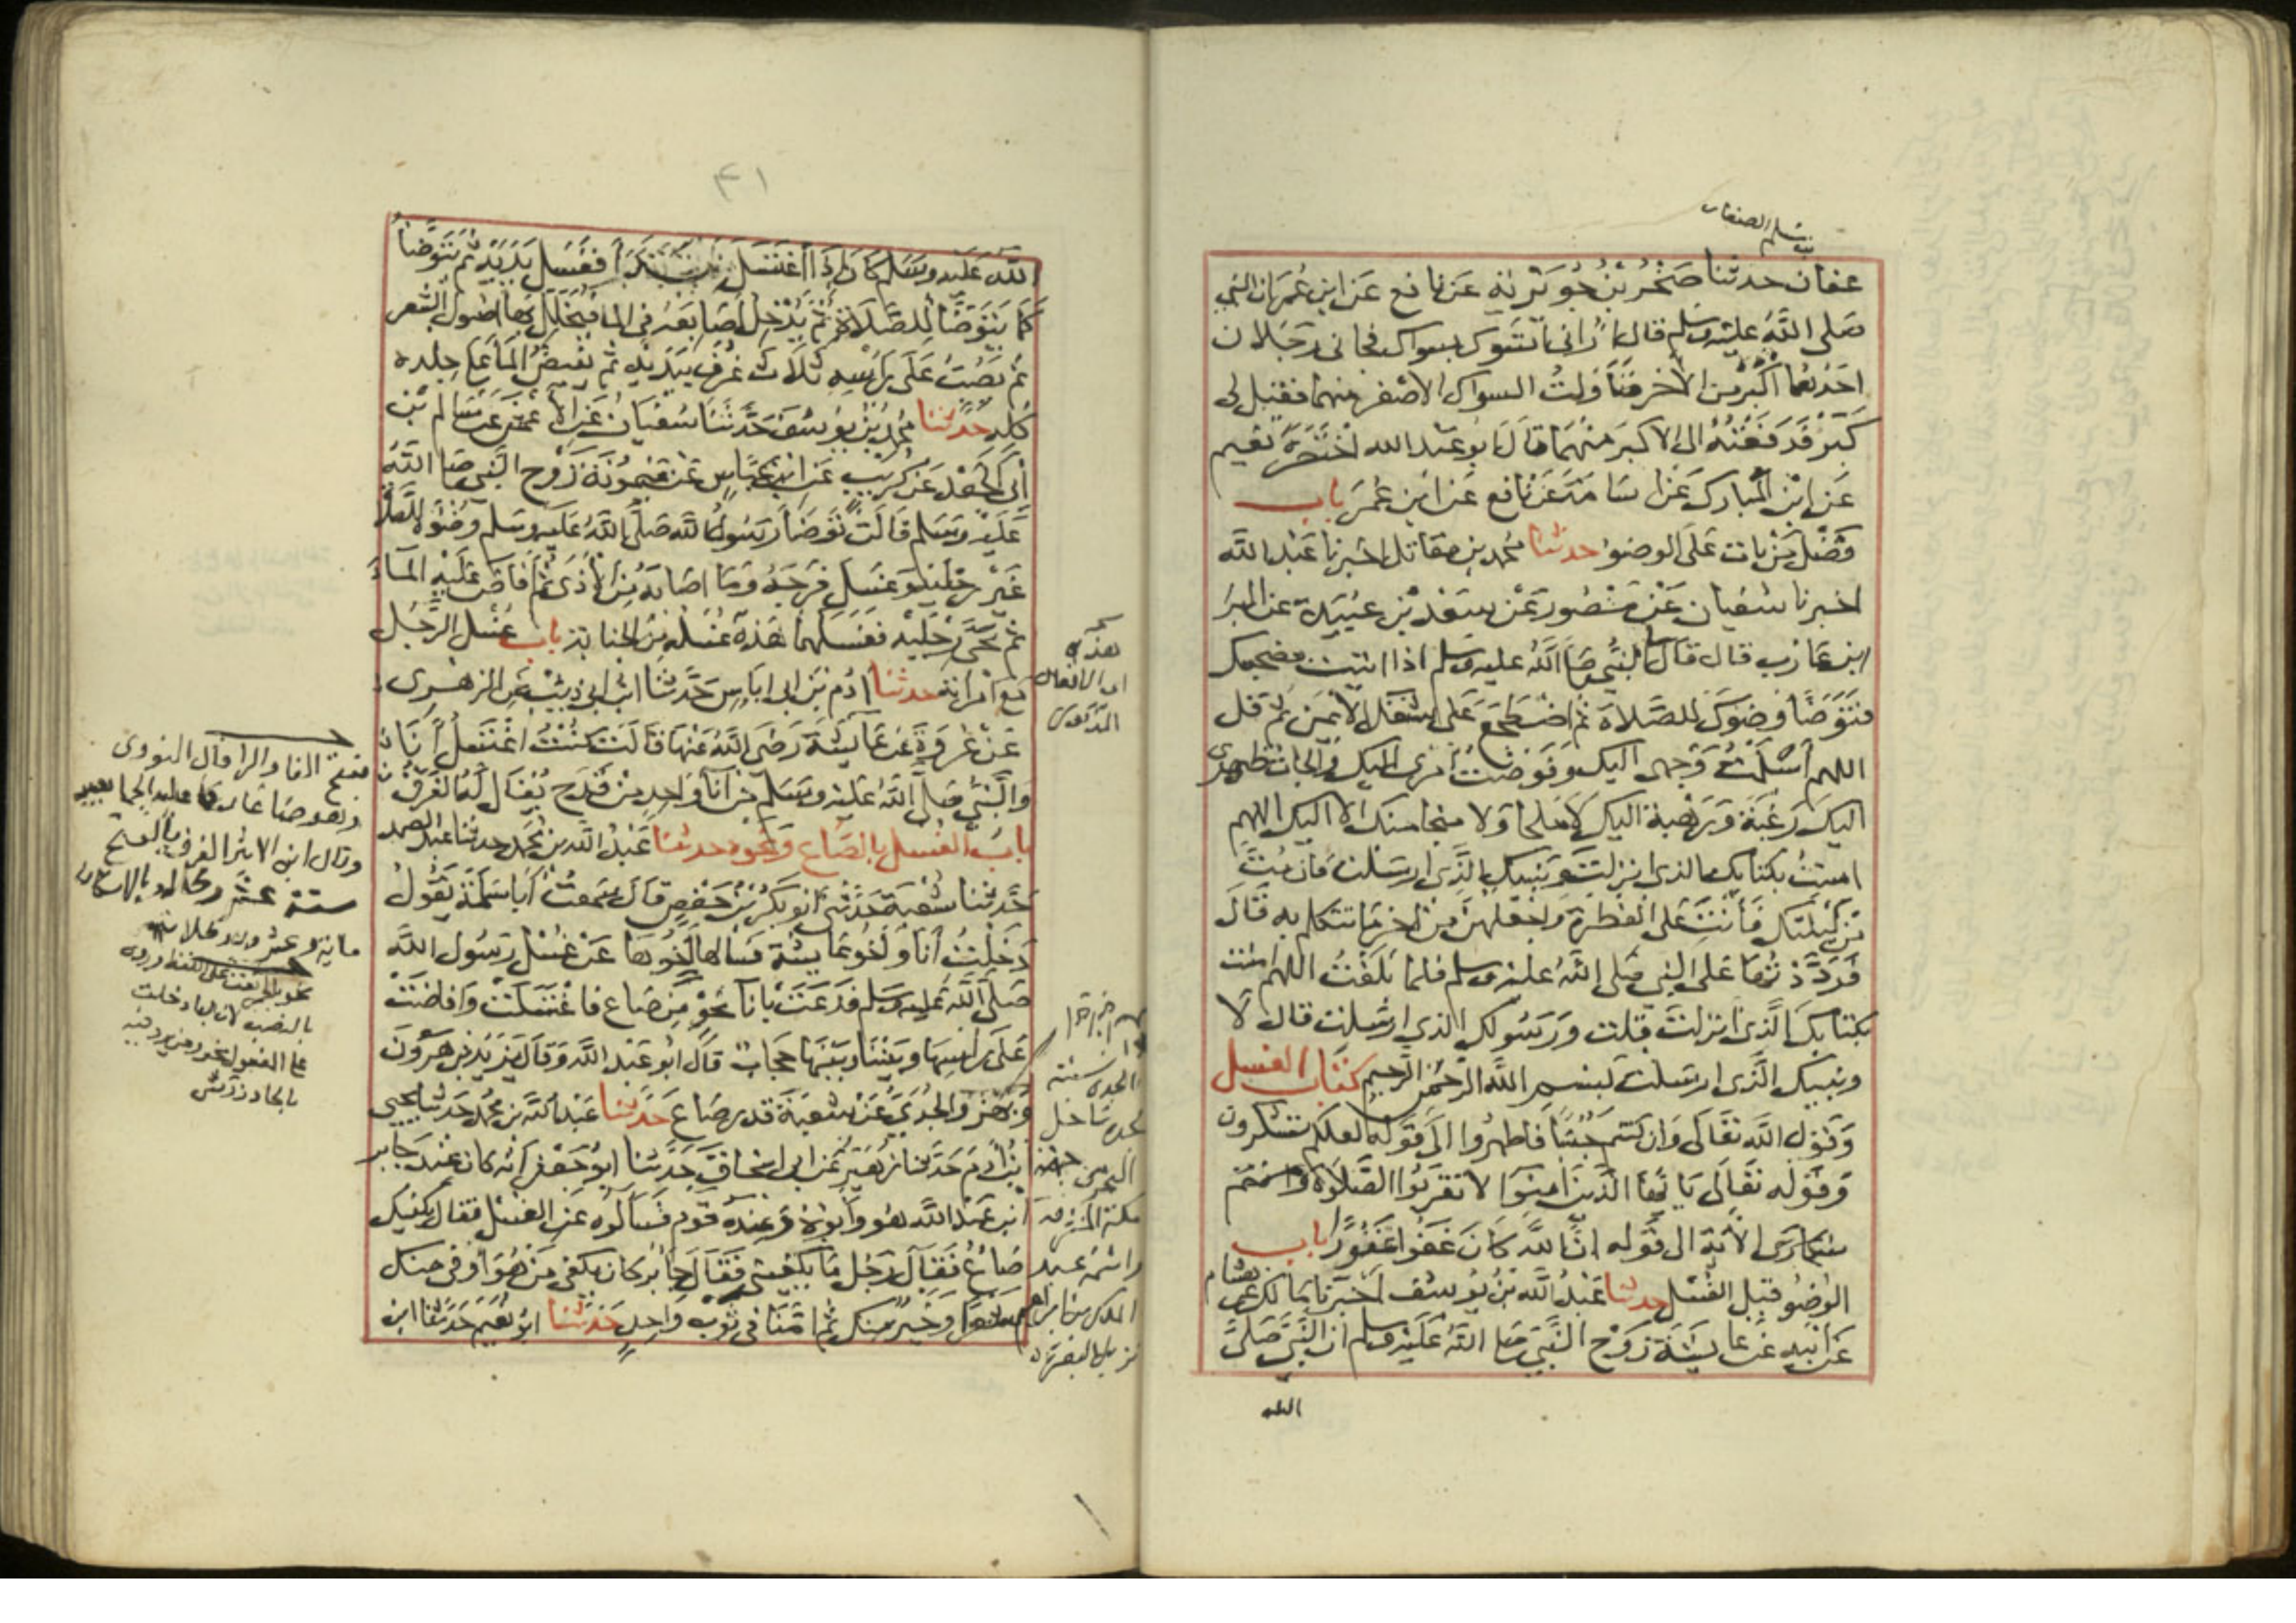 بن مسلم الصفار
عفان حدثنا صَخْرُ بْنُ جُوَيْرِيَة عَن نافع عَن ابن عُمَر ان النبي
صَلى اللَّهُ عليْه وسَلم قال أراني أتسَوك بسواك فجاني رَجَلان
احَدُهُما أكْبَرُ من الآخر فَنَاوَلتُ السواك الاصْغر منهما فقيل لي
كَبّرْ فَدَفَعْتُهُ الى الاكبَر مِنْهُمَا قالَ ابو عَبْد الله اخْتَصَرَهُ نُعَيم
عَن ابْن المُبارك عَن اسَامَةَ عَن نافع عَن ابْن عُمَرَ باب
فَضْل مَنْ بَات عَلَى الوضوء حدثنا محمد بن مقاتل اخبرنا عَبْد اللَّه
اخبرنا سُفيان عَنْ مَنْصُور عَنْ سَعْد بْنِ عُبَيْدَة عَن البَرَا
ابن عَازب قال قال لي النبي صَلى اللَّهُ عليه وسَلم اذا اتيت مضجعك
فتَوَضَّأ وضوك للصَّلاة ثم اضْطَجع عَلى شقك الايْمَن ثم قل
اللهم أسْلَمْتُ وَجهي اليك وفَوضتُ أمري اليك والجات ظهري
اليكَ رَغبَةً وَرَهْبَة اليك لَا مَلجا وَلا منجا منك الا اليك اللهم
امنتُ بكتابك الذي انزلت وَنَبيك الذي ارسَلت فان مُتَّ
مِن لَيْلتك فَأنْتَ عَلى الفطْرة وَاجْعَلهنّ من اخر مَا تتكلم به قَالَ
فَرَدَّدْتُهَا عَلى النبي صَلى اللَّهُ عليه وسلم فلما بَلَغْتُ اللهم امنت
بكتابك الَّذي انزلت قلت وَرَسُولك الذي ارسَلت قال لَا
ونبيك الَّذي ارسَلت بسْمِ اللَّهِ الرّحْمَن الرّحِيم كتَاب الغسل
وَقوْل اللَّه تعَالى وَان كنتم جُنُبًا فَاطهروا الى قوله لعلكم تشكرون
وَقوْله تعَالى يَا أيهَا الَّذينَ امنوا لَا تقْرَبُوا الصَّلَاة وَانتم
سكارَى الآيَة الى قَوله انّ اللَّهَ كَانَ عَفوّا غَفُورًا باب
الوُضُو قبْل الغُسْل حدثنا عَبْدُ اللَّه بْن يُوسُف أخْبَرَنَا مَالك عَن هشام
عَن أبيه عَن عَايشَة زَوْج النَّبي صَلى اللَّهُ عَلَيْه وسلم ان النَّبيَّ صَلَّى
الله
٤١
اللَّه عَلَيْه وَسَلم كَانَ إذَا اغْتسَل من الجنابة بدَأ فغَسَل يَدَيْه ثم يتوَضَّأ
كَمَا يَتَوَضَّأ للصَّلَاة ثم يُدْخِل أصَابعَهُ في الماء فيُخَلل بهَا اصُول الشعر
ثم يَصُبّ عَلَى رَأسِه ثَلَاث غُرَفٍ بيَدَيْه ثم يفيض المَاء عَلى جلده
كُله حَدَّثنا محمد بْن يُوسُف حَدَّثَنَا سُفيَان عَن الأعْمَش عَن سَالم بْن
أبي الجَعْد عَن كُرَيْب عَن ابْن عَبَّاس عَن مَيْمُونَة زَوْج النَّبي صَلى اللَّه
عَلَيْهِ وَسَلم قَالَت تَوَضَأ رَسُول اللَّه صَلَّى اللَّهُ عَلَيْه وسَلم وضُوءه للصَّلَاة
غَيْر رجْليْه وَغسَل فَرجَهُ وَمَا اصَابَهُ مِن الأذَى ثم أفَاضَ عَلَيْهِ المَاءَ
ثم نَحَّى رجْلَيْه فغسَلهما هَذِه غُسْله من الجنابَة باب غُسْل الرَّجُل
مَع امْرَاته حدثنا ادَم بْن ابي ايَاس حَدَّثنا ابْن ابي ذيْب عَن الزهْري
عَنْ عُرْوَة عَن عَايشَة رَضي اللَّهُ عَنْهَا قَالَت كُنْتُ اغْتَسلُ أنَا
وَالنَّبي صَلى اللَّهُ عَليْه وَسَلم من انَاءٍ وَاحِدٍ مِنْ قَدَح يُقَال لَهُ الفَرَقُ
بابُ الغُسل بالصَّاع وَنحوه حدثنا عَبْدُ اللَّه بن مُحَمَّد حدثنا عبد الصمد
حَدَّثنا شُعْبَة حَدَّثني أبُو بَكْر بْن حَفْصٍ قَالَ سَمعْتُ أبَا سَلَمَة يَقُولُ
دَخَلْتُ أنَا وَأخُو عَايشَة فسَألهَا أخُوهَا عَنْ غُسْل رَسُول اللَّه
صَلَّى اللَّه عَليه وسَلم فَدَعَتْ بانَاءٍ نَحْوٍ مِن صَاع فَاغْتَسَلَتْ وَافاضَتْ
عَلى رَأسِهَا وبَيْنَنَا وبَيْنهَا حجَاب قَالَ ابُو عَبْد اللَّه وَقالَ يَزيْد بْن هَرُونَ
وَبَهْز وَالجُدّيّ عَنْ شعْبَة قَدر صَاع حَدَّثنا عَبْد اللَّه بن محمد حَدثنا يحيى
بْنُ آدَم حَدَّثنا زُهَيْر عَن ابي اسْحَاق حَدَّثنا ابُو جَعْفَر أنَّه كَانَ عنْدَ جَابر
بْن عَبْد اللَّه هُوَ وَأبُوهُ وَعِنْدَه قَوم فَسَألُوه عَن الغُسْل فقَال يَكْفيكَ
صَاعٌ فَقَالَ رَجُل مَا يَكفيني فَقَالَ جَابر كَانَ يَكفي مَنْ هُوَ أوْفى منك
شعَرًا وَخَيْرٌ مِنك ثم أمَّنَا في ثَوْبٍ وَاحِدٍ حَدَّثنَا ابُو نُعَيْم حَدَّثنَا ابن
هذه
اي الافعال
المذكورة
بفتح الفاء والرا قال النووي
وقال ابن الاثير الفرق بالفتح
ستة عشر رطلا وبالاسكان
ماية وعشرون رطلا